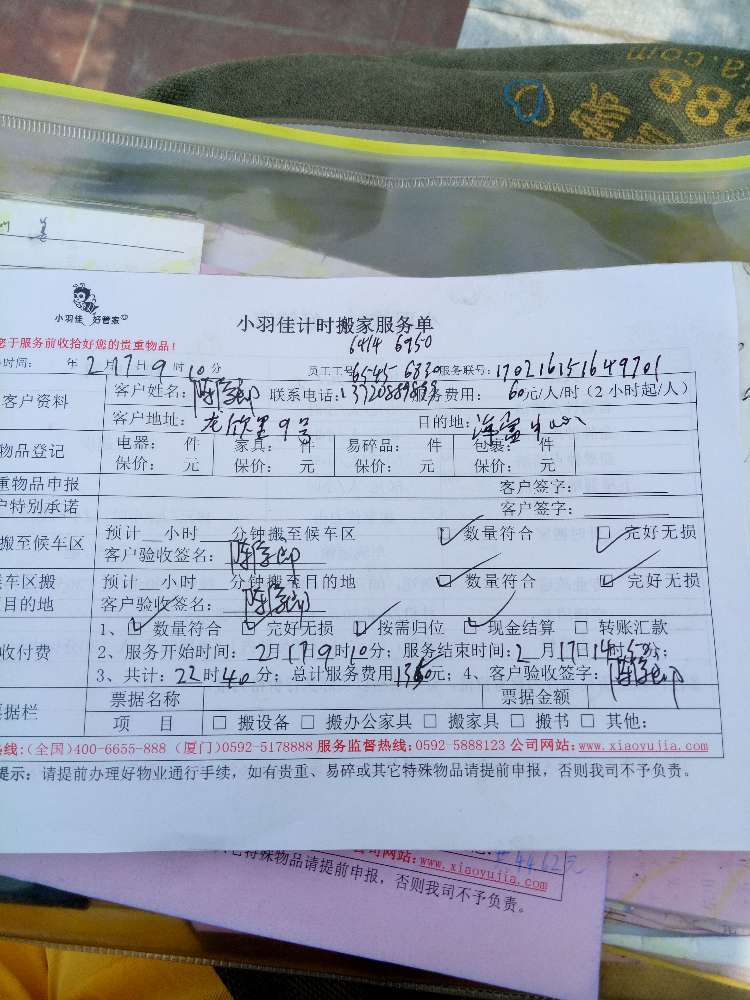 888
a.com
小羽佳 好管家
小羽佳计时搬家服务单
您于服务前收拾好您的贵重物品！
6914 6950
时间： 年2月17日9时10分 员工工号6545 6830服务联号：170216151649701
客户资料
客户姓名： 联系电话： 服务费用： 60元/人/时（2小时起/人）
客户地址：龙欣里9号 目的地：
物品登记
电器： 件 家具： 件 易碎品： 件 包裹： 件
保价： 元 保价： 元 保价： 元 保价： 元
重物品申报 客户签字：
户特别承诺 客户签字：
搬至候车区
预计 小时 分钟搬至候车区 ☑ 数量符合 ☑ 完好无损
客户验收签名：
车区搬
目的地
预计 小时 分钟搬至目的地 ☑ 数量符合 ☑ 完好无损
客户验收签名：
收付费
1、☑ 数量符合 ☑ 完好无损 ☑ 按需归位 ☑ 现金结算 □ 转账汇款
2、服务开始时间：2月17日9时10分；服务结束时间：2月17日14时50分；
3、共计：22时40分；总计服务费用1360元；4、客户验收签字：
据栏
票据名称 票据金额
项 目 □ 搬设备 □ 搬办公家具 □ 搬家具 □ 搬书 □ 其他：
热线：（全国）400-6655-888（厦门）0592-5178888 服务监督热线：0592-5888123 公司网站：www.xiaoyujia.com
提示：请提前办理好物业通行手续，如有贵重、易碎或其它特殊物品请提前申报，否则我司不予负责。
公司网站：www.xiaoyujia.com
它特殊物品请提前申报，否则我司不予负责。